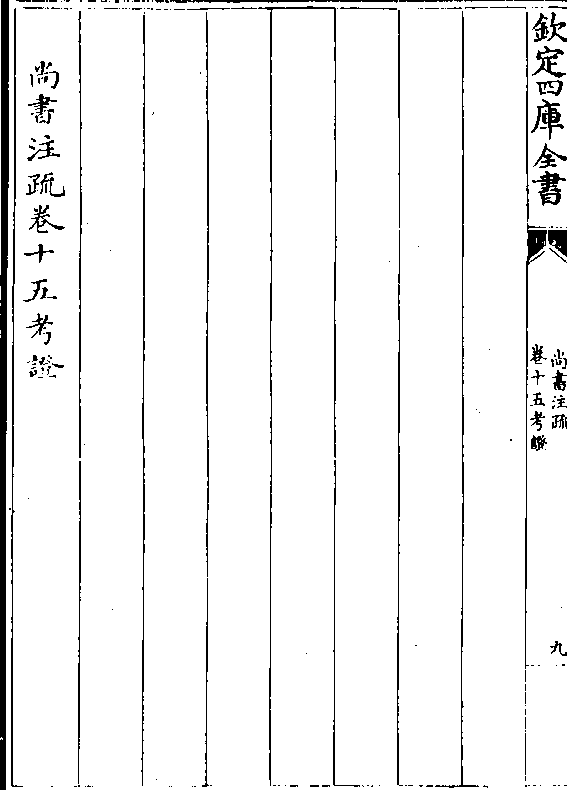 欽定四庫全書
尚書注疏
卷十五考證
九
尚書注疏卷十五考證